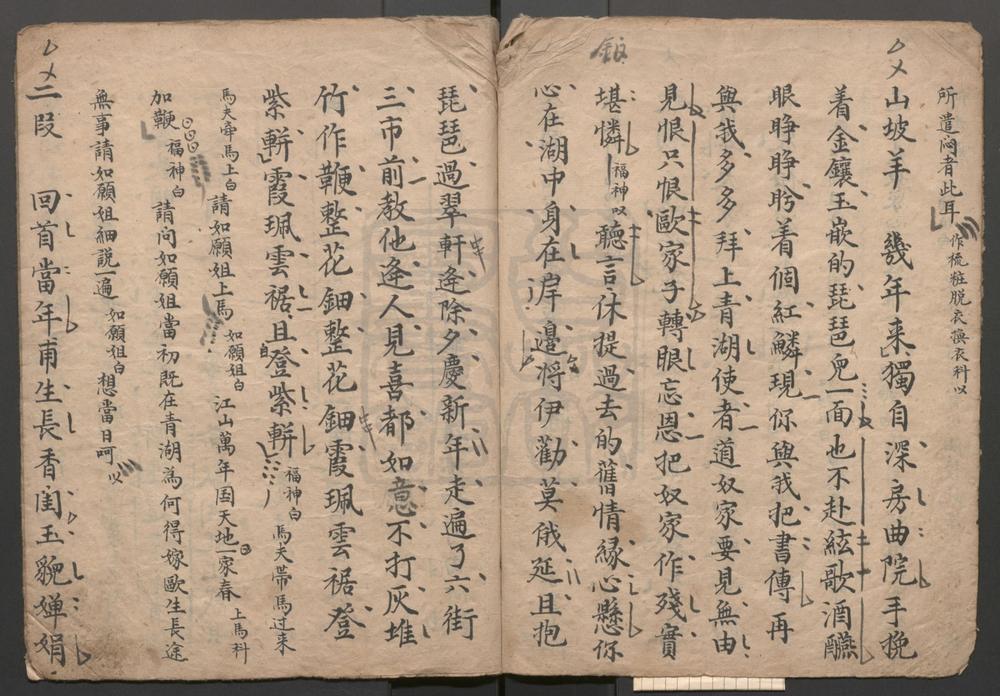 所遣闷者此耳 作梳粧脱衣換衣科以
山坡羊 幾年来獨自深房曲院手挽
着金鑲玉嵌的琵琶兜一面也不赴絃歌酒醼
眼睁睁盻着個紅鱗現你與我把書傳再
與我多多拜上青湖使者道奴家要見無由
見恨只恨歐家子轉眼忘恩把奴家作殘實
堪憐 福神以 聽言休提過去的舊情緣心懸你
心在湖中身在岸邉将伊勸莫俄延且抱
琵琶過翠軒逄除夕慶新年走遍了六街
三市前教他逄人見喜都如意不打灰堆
竹作鞭整花鈿整花鈿霞珮雲裾登
紫軿霞珮雲裾且登紫軿 福神白 馬夫帶馬过来
馬夫帶馬上白 請如願姐上馬 如願姐白 江山萬年国天地一家春 上馬科
加鞭 福神白 請问如願姐當初既在青湖為何得嫁歐生長途
無事請如願姐細説一遍 如願姐白 想當日呵 以
二段 回首當年甫生長香闺玉貌嬋娟